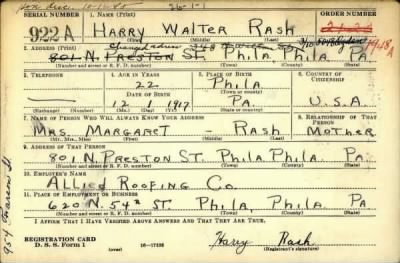 26-1-1
SERIAL NUMBER 1. NAME (Print) ORDER NUMBER
922A HARRY WALTER RASH
(First) (Middle) (Last)
2. ADDRESS (Print) Changed address
801 N. PRESTON ST. PHILA. PHILA. PA.
(Number and street or R. F. D. number) (Town) (County) (State)
3. TELEPHONE 4. AGE IN YEARS 5. PLACE OF BIRTH 6. COUNTRY OF CITIZENSHIP
22 PHILA.
DATE OF BIRTH (Town or county)
12 1 1917 PA. U.S.A.
(Exchange) (Number) (Mo.) (Day) (Yr.) (State or country)
7. NAME OF PERSON WHO WILL ALWAYS KNOW YOUR ADDRESS 8. RELATIONSHIP OF THAT PERSON
MRS. MARGARET - RASH MOTHER
(Mr., Mrs., Miss) (First) (Middle) (Last)
9. ADDRESS OF THAT PERSON
801 N. PRESTON ST. PHILA. PHILA. PA.
(Number and street or R. F. D. number) (Town) (County) (State)
10. EMPLOYER'S NAME
ALLIED ROOFING CO.
11. PLACE OF EMPLOYMENT OR BUSINESS
620 N. 54TH ST. PHILA. PHILA. PA
(Number and street or R. F. D. number) (Town) (County) (State)
I AFFIRM THAT I HAVE VERIFIED ABOVE ANSWERS AND THAT THEY ARE TRUE.
REGISTRATION CARD
D. S. S. Form 1 (over) 16-17105 Harry Rash
(Registrant's signature)